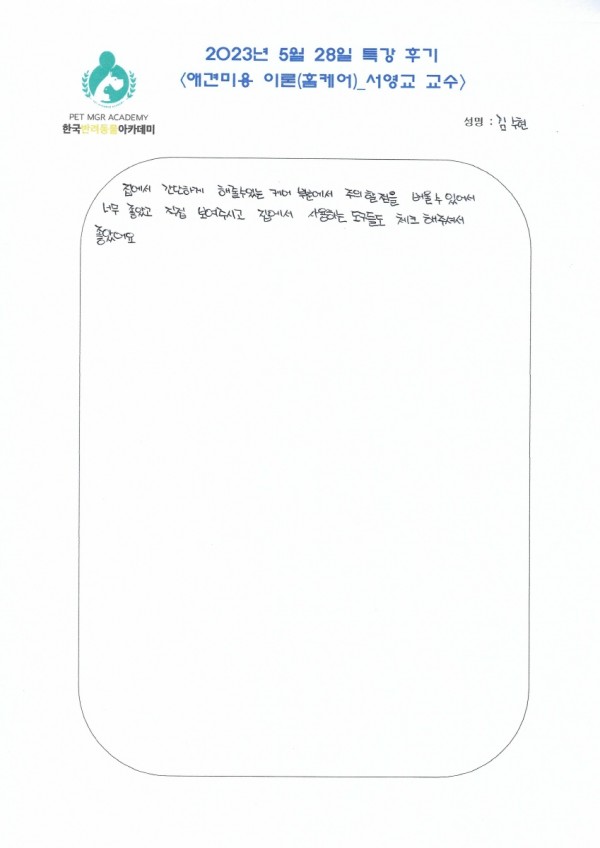 2023년 5월 28일 특강 후기
<애견미용 이론(홈케어)_서영교 교수>
PET MGR ACADEMY
한국반려동물아카데미
성명 : 김수현
집에서 간단하게 해줄수있는 케어 부분에서 주의할점을 배울수 있어서
너무 좋았고 직접 보여주시고 집에서 사용하는 도구들도 체크해주셔서
좋았어요